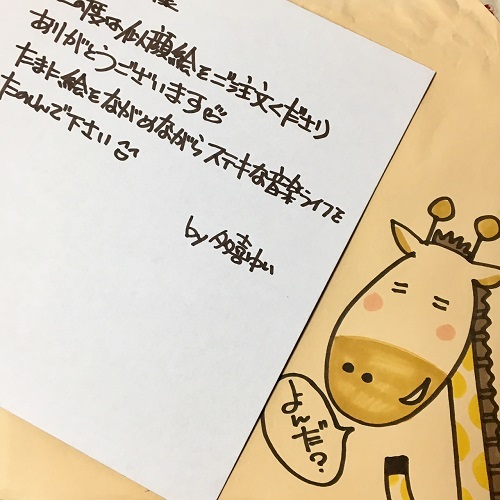 この度は似顔絵をご注文くださり
ありがとうございます
たまに絵をながめながらステキな音楽ライフを
たのしんで下さい
by 多嬉ゆい
よんだ?